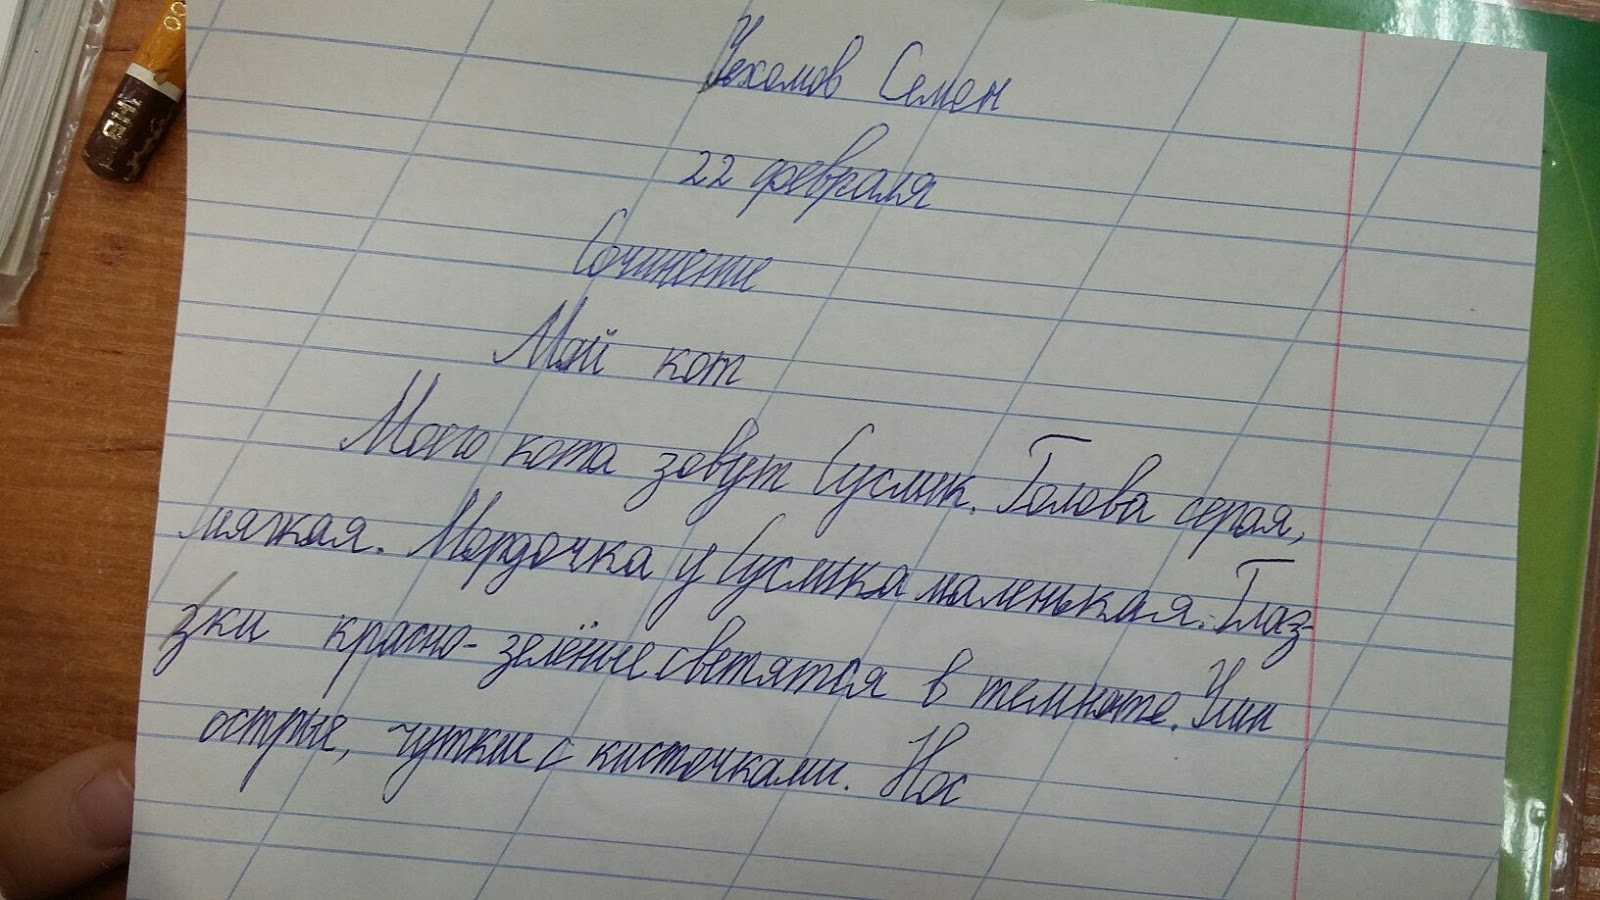 Семен
22 февраля
Сочинение
Мой кот
Моего кота зовут Суслик. Голова серая,
мягкая. Мордочка у Суслика маленькая. Глаз-
зки красно-зелёные светятся в темноте. Уши
острые, чуткие с кисточками. Нос